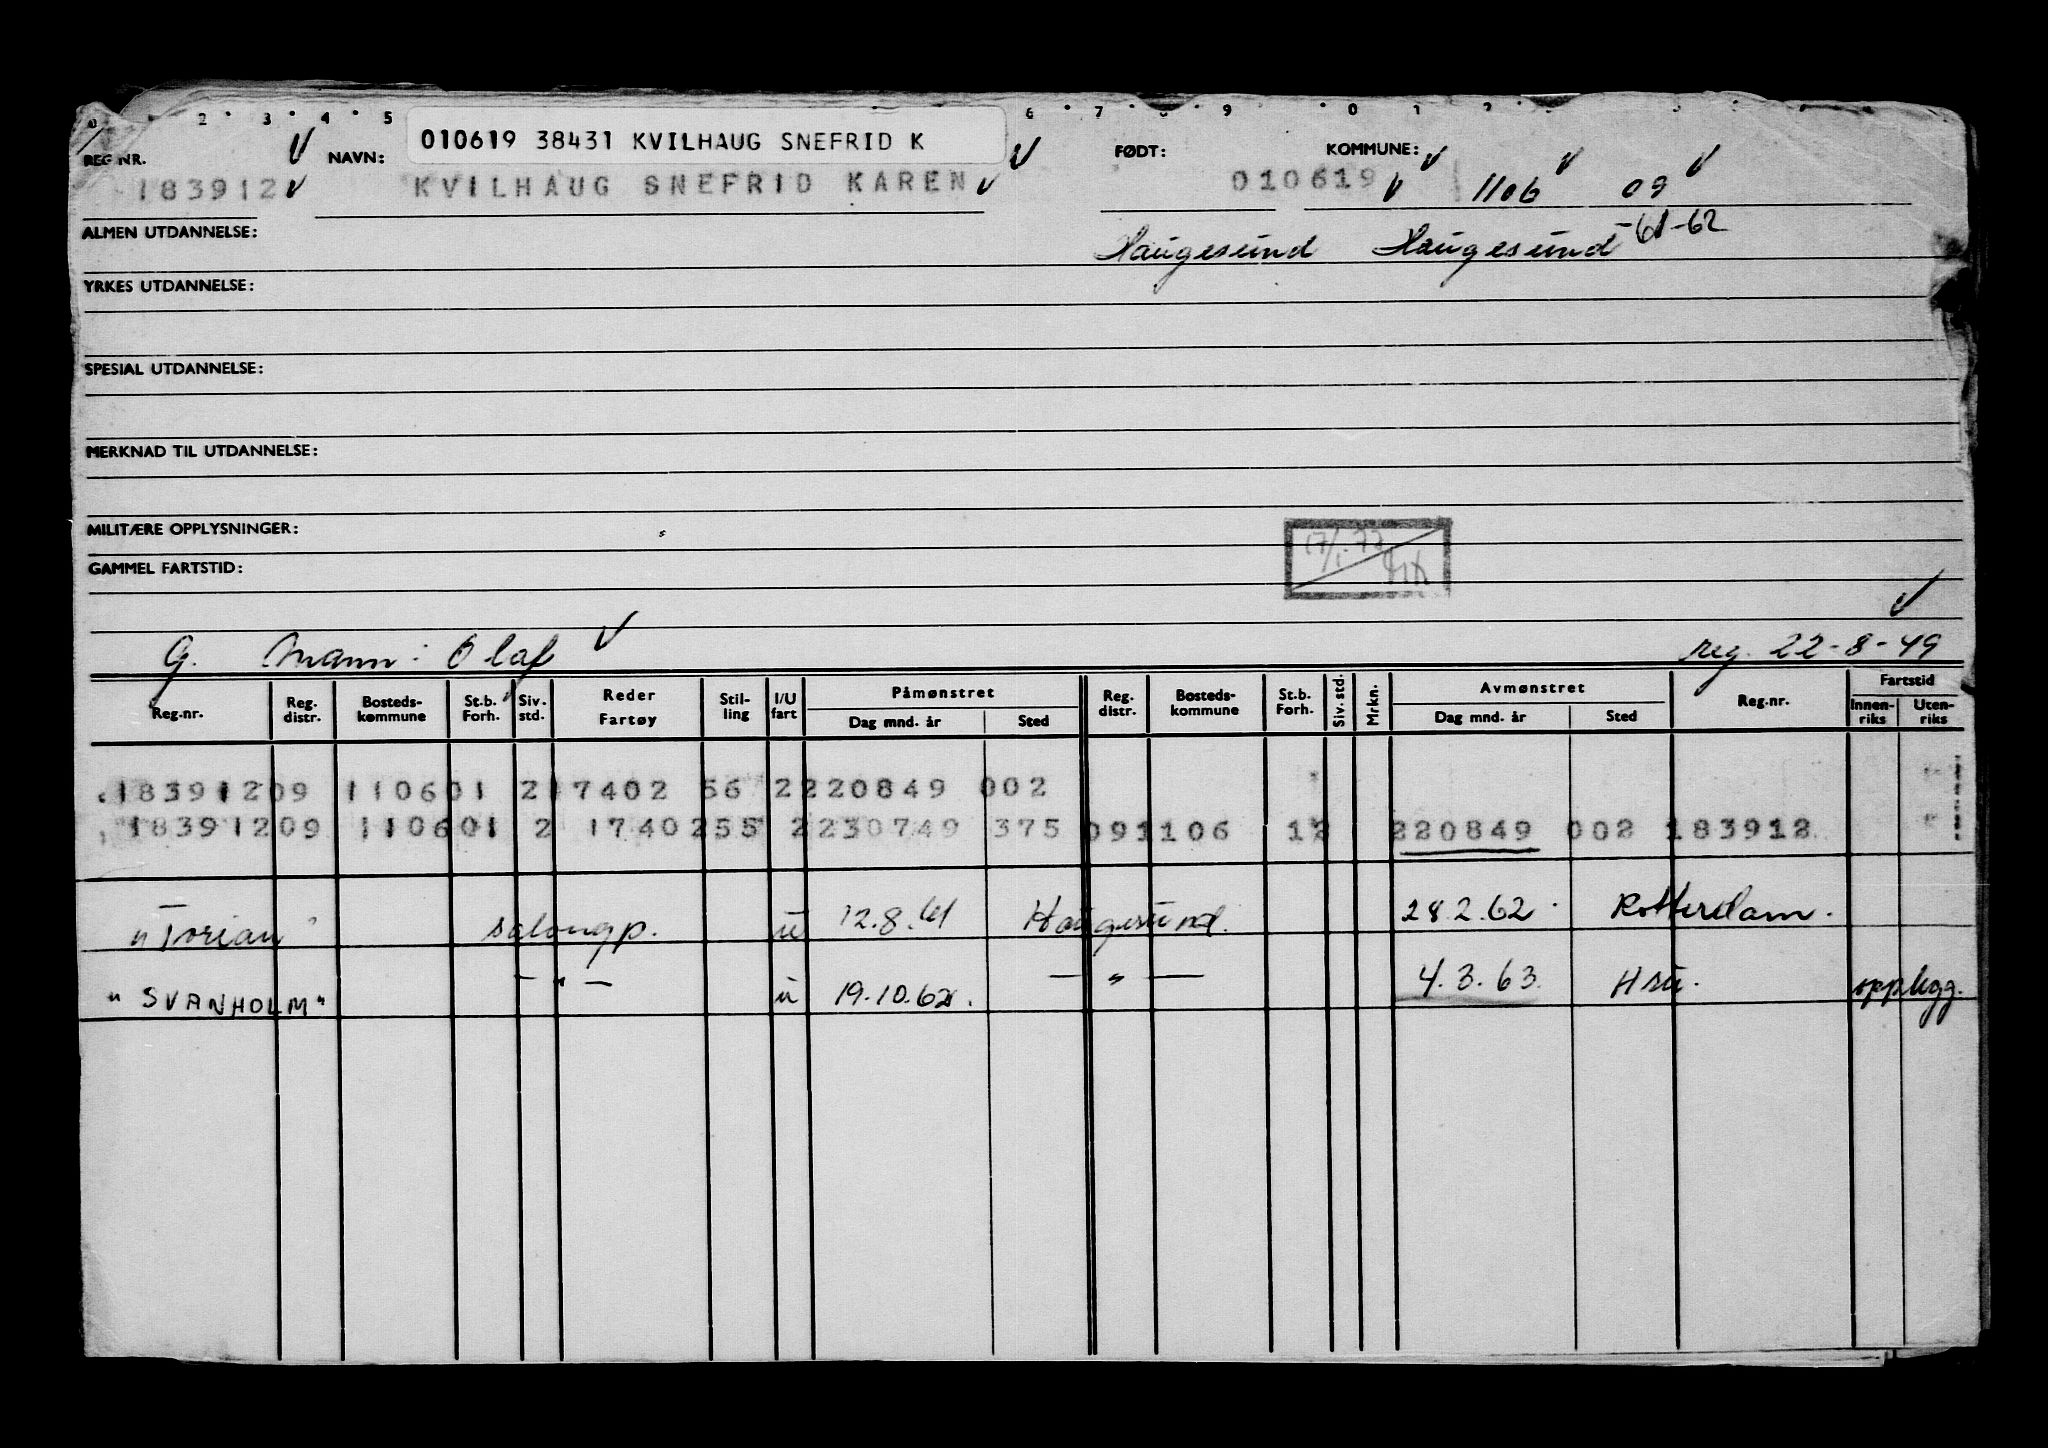 2 3 4 5 6 7 8 9 0 1 2
010619 38431 KVILHAUG SNEFRID K
REG NR. NAVN: FØDT: KOMMUNE:
183912 KVILHAUG SNEFRID KAREN 010619 1106 09
ALMEN UTDANNELSE: Haugesund Haugesund -61-62
YRKES UTDANNELSE:
SPESIAL UTDANNELSE:
MERKNAD TIL UTDANNELSE:
MILITÆRE OPPLYSNINGER:
17/1.73
GAMMEL FARTSTID:
G. Mann: Olaf reg. 22-8-49
Reg.nr. Reg. distr. Bosteds- kommune St.b. Forh. Siv. std. Reder Fartøy Stil- ling I/U fart Påmønstret Dag mnd. år Sted Reg. distr. Bosteds- kommune St.b. Forh. Siv. std. Mrkn. Avmønstret Dag mnd. år Sted Reg.nr. Fartstid Innen- riks Uten- riks
18391209 110601 217402 56 2220849 002
18391209 110601 2 1740255 2230749 375 091106 12 220849 002 183912
"Torian" salongp. u 12.8.61 Haugesund. 28.2.62 Rotterdam.
"SVANHOLM" — " — u 19.10.62. — " — 4.3.63 Hsu. opplegg.